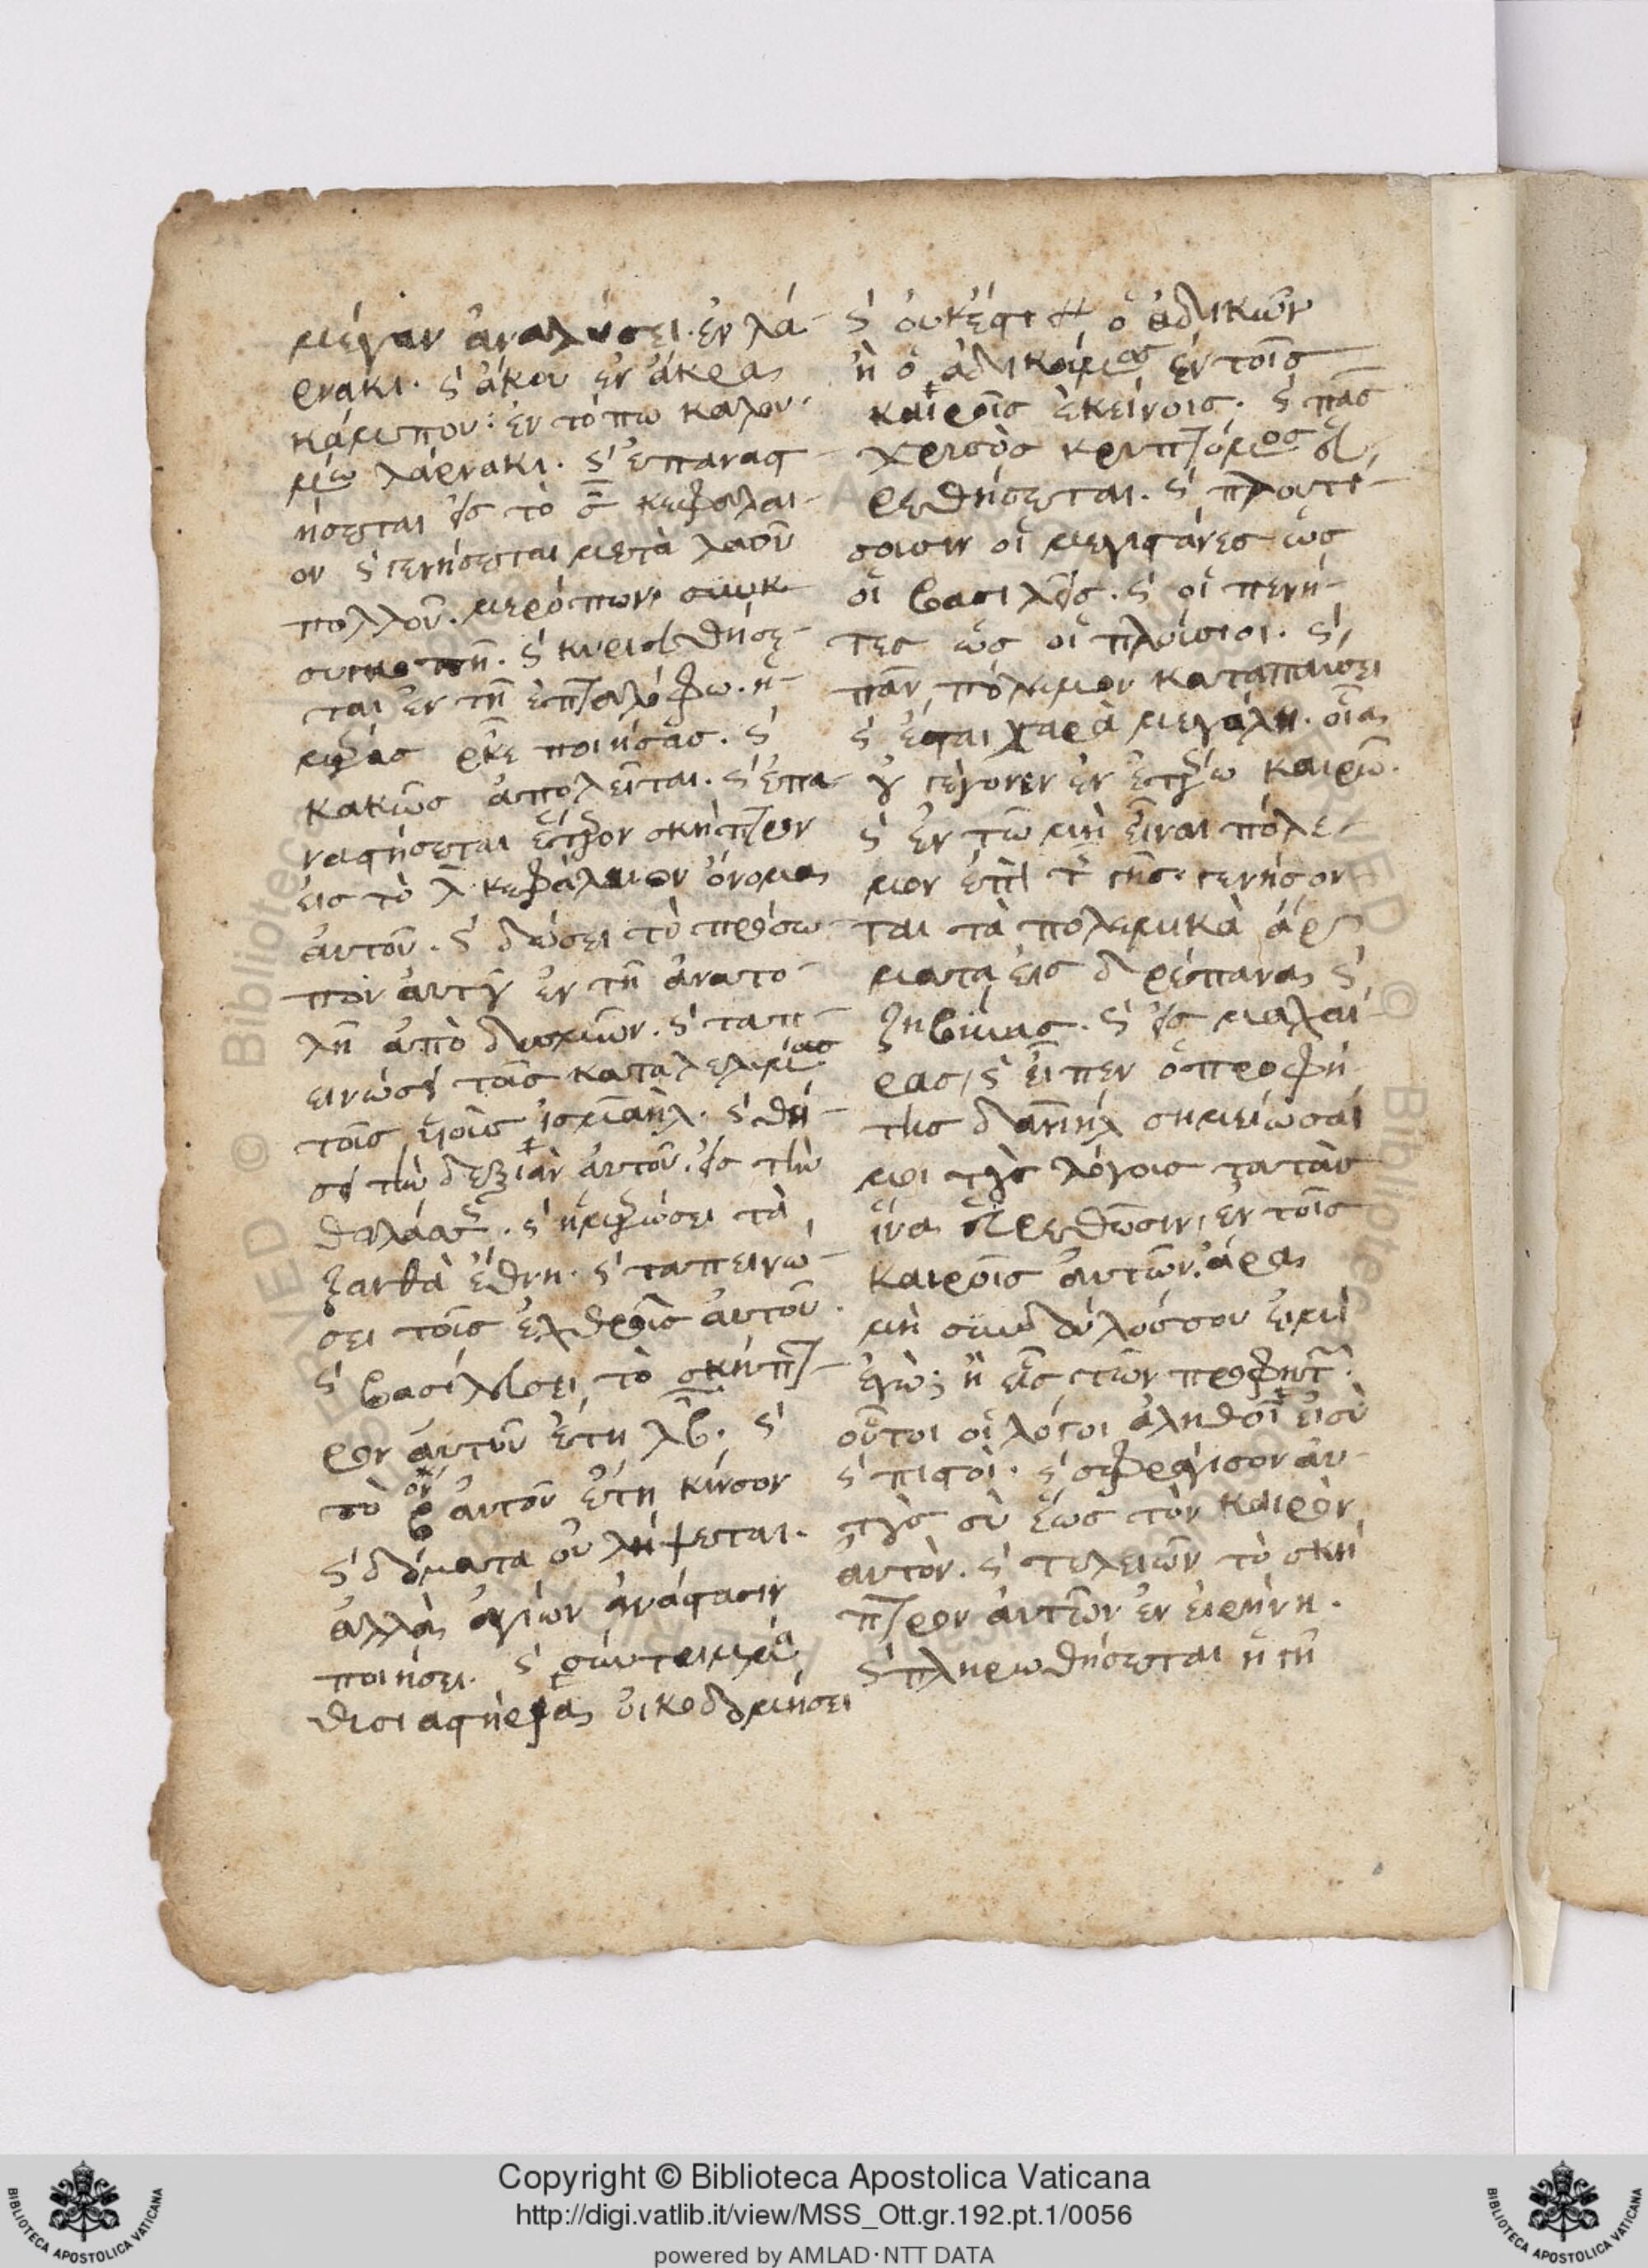 μέγαν ἀναλύσει. ἐν λά-
ρνακι. ϛ ἄκου ἐν ἄκρα
κάμπου: ἐν τόπω καλου-
μέω λάρνακι. ϛ ἐπαναστ
ήσεται εἰς τὸ σ κεφαλαι-
ον ϛ γενήσεται μετὰ λαοῦ
πολλοῦ. μερόπων
ϛ κυριευθήσε-
ται ἐν τῆ ἑπταλόφω. ἡ-
μέρας ρκε ποιήσας. ϛ
κακῶς ἀπολεῖται. ϛ ἐπα-
ναστήσεται ἕτερον σκήπτρον
εἰς τὸ λ κεφάλαιον ὄνομα
αὐτοῦ. ϛ δώσει τὸ πρόσω-
πον αὐτοῦ ἐν τῆ ἀνατο-
λῆ ἀπὸ δυσμῶν. ϛ ταπ-
εινώσει τοῖς καταλελιμένας
τοῖς υἱοῖς ἰσμαὴλ. ϛ θή-
σει τὴν δεξιὰν αὐτοῦ. εἰς τὴν
θαλάσσ. ϛ ἡμερώσει τὰ
ξανθὰ ἔθνη. ϛ ταπεινώ-
σει τοῖς ἐχθροῖς αὐτοῦ.
ϛ βασιλεύσει τὸ σκήπτ-
ρον αὐτοῦ ἔτη λβ. ϛ
τὸ αὐτοῦ ἔτη κίνσον
ϛ δόματα οὐ λήψεται.
ἀλλὰ ἁγίων ἀνάστασιν
ποιήσει. ϛ συντριμμένα
θισιαστήρια οἰκοδομήσει
ϛ οὐκέστι ὁ ἀδικῶν
ἢ ὁ ἀδικούμενος ἐν τοῖς
καιροῖς ἐκείνοις. ϛ πᾶς
χρισὸς κρυπτόμενος εὑ-
ρεθήσεται. ϛ πλουτί-
σουσιν οἱ μεγιστάνες ὡς
οἱ βασιλεῖς. ϛ οἱ πενη-
τες ὡς οἱ πλούσιοι. ϛ
πᾶν πόλεμον καταπαύσει
ϛ ἔσται χαρὰ μεγάλη. οἵα
οὐ γέγονεν ἐν ἑτέρω καιρῶ.
ϛ ἐν τῶ μὴ εἶναι πόλε-
μον ἐπὶ τ γῆς. γενήσον-
ται τὰ πολεμικὰ ἅρ-
ματα εἰς δρέπανα ϛ
ζηβύνας. ϛ εἰς μαχαί-
ρας, ϛ εἶπεν ὁ προφή
της δανιὴλ σημείωσαί
μοι τοὺς λόγους
ἵνα εὑρεθῶσιν, ἐν τοῖς
καιροῖς αὐτῶν. ἄρα
μὴ σύνδουλόσσου εἰμὶ
ἐγώ; ἢ εἷς τῶν προφητ.
οὗτοι οἱ λόγοι ἀληθοῖ εἰσὶ
ϛ πιστοὶ. ϛ σφράγισον αὐ-
τοὺς σὺ ἕως τὸν καιρὸν
αὐτὸν. ϛ τελειῶν τὸ σκή
πτρον αὐτῶν ἐν εἰρήνη.
ϛ πληρωθήσεται ἡ γῆ
Copyright © Biblioteca Apostolica Vaticana
http://digi.vatlib.it/view/MSS_Ott.gr.192.pt.1/0056
powered by AMLAD·NTT DATA